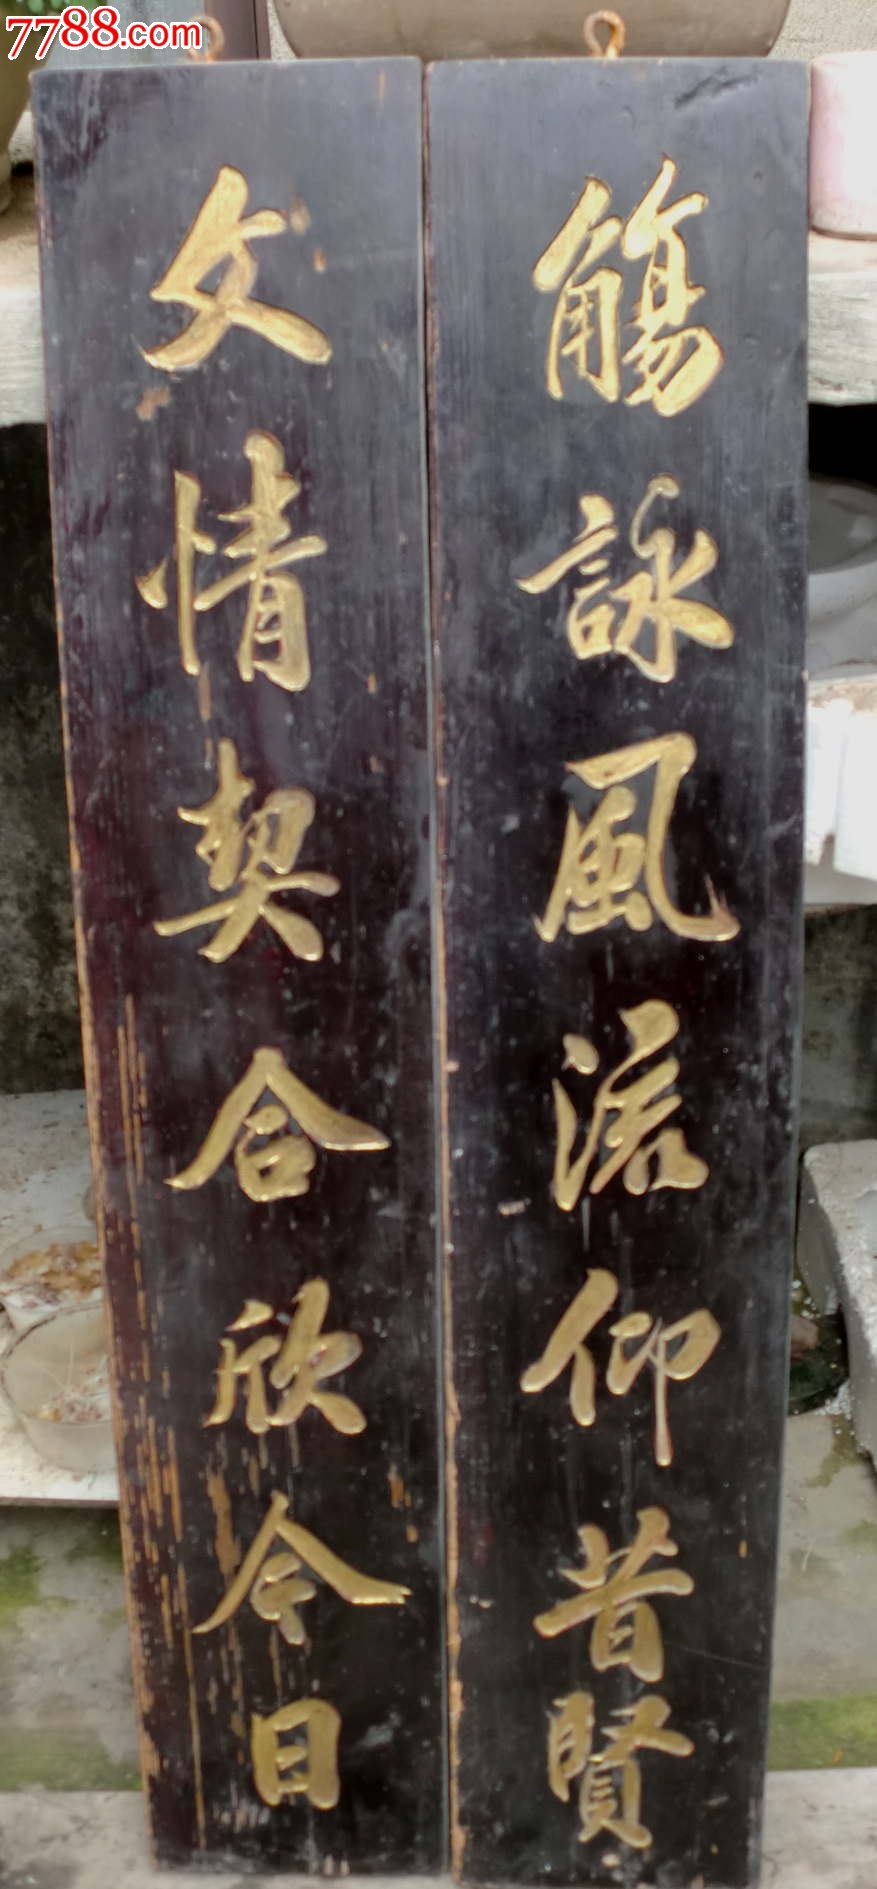 7788.com
觴詠風流仰昔賢
文情契合欣今日